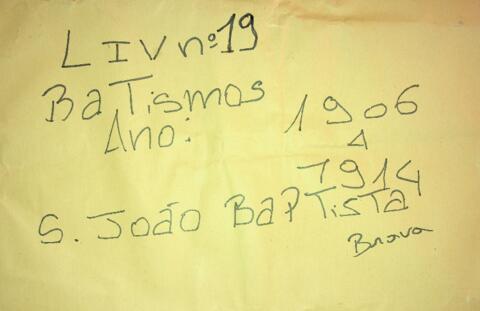 LIV nº 19
BaTismos
Ano: 1906
A
1914
S. João BaPTisTa
Brava